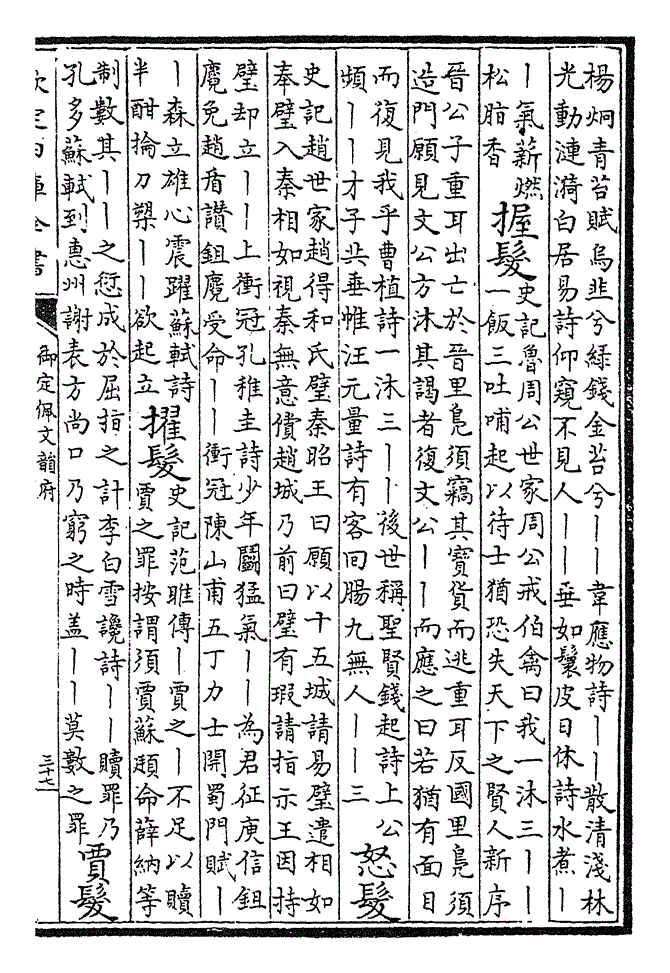 楊炯青苔賦烏韭兮綠錢金苔兮丨丨韋應物詩丨丨散清淺林
光動漣漪白居易詩仰窺不見人丨丨垂如鬟皮日休詩水煮丨
丨氣薪燃
松脂香
握髮
史記魯周公世家周公戒伯禽曰我一沐三丨丨
一飯三吐哺起以待士猶恐失天下之賢人新序
晉公子重耳出亡於晉里鳬須竊其寶貨而逃重耳反國里鳬須
造門願見文公方沐其謁者復文公丨丨而應之曰若猶有面目
而復見我乎曹植詩一沐三丨丨後世稱聖賢錢起詩上公
頻丨丨才子共垂帷汪元量詩有客回腸九無人丨丨三
怒髮
史記趙世家趙得和氏璧秦昭王曰願以十五城請易璧遣相如
奉璧入秦相如視秦無意償趙城乃前曰璧有瑕請指示王因持
璧却立丨丨上衝冠孔稚圭詩少年鬬猛氣丨丨為君征庾信鉏
麑免趙盾讚鉏麑受命丨丨衝冠陳山甫五丁力士開蜀門賦丨
丨森立雄心震躍蘇軾詩
半酣掄刀槊丨丨欲起立
擢髮
史記范睢傳丨賈之丨不足以贖
賈之罪按謂須賈蘇頲命薛納等
制數其丨丨之愆成於屈指之計李白雪讒詩丨丨贖罪乃
孔多蘇軾到惠州謝表方尚口乃窮之時盖丨丨莫數之罪
賈髮
欽定四庫全書
御定佩文韻府
三十七